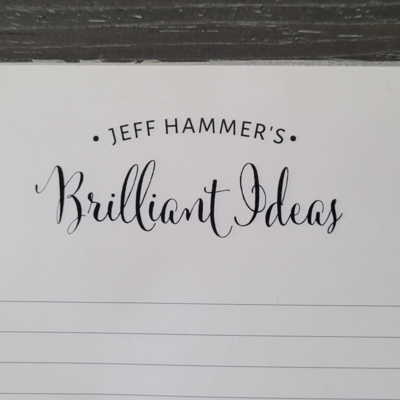 • JEFF HAMMER'S •
Brilliant Ideas